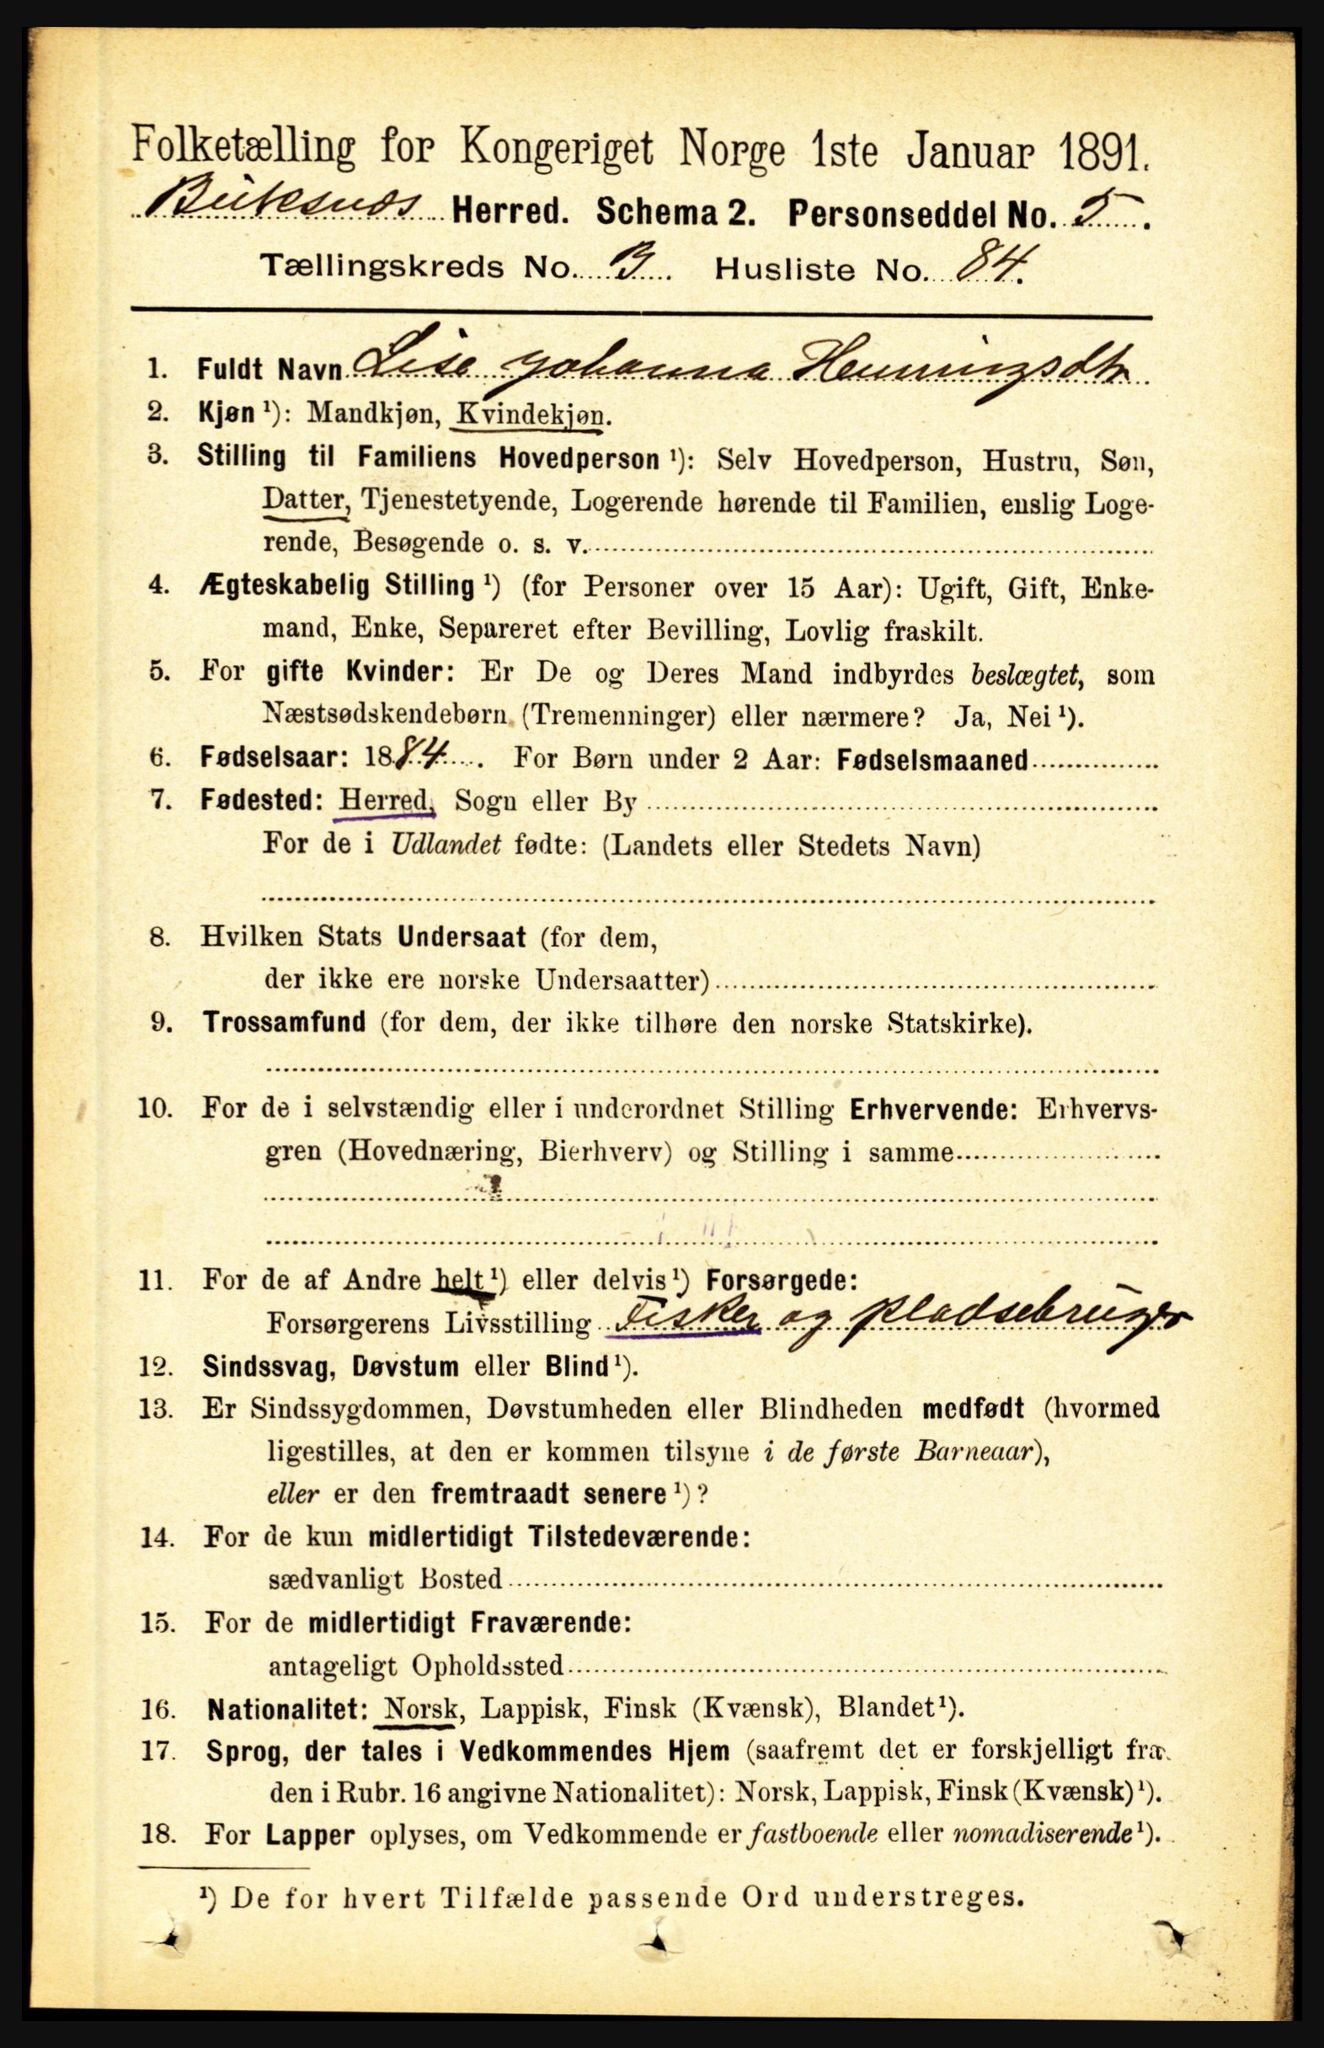 Folketælling for Kongeriget Norge 1ste Januar 1891.
Buksnæs Herred. Schema 2. Personseddel No. 5.
Tællingskreds No. 3. Husliste No. 84.
1. Fuldt Navn Lise Johanna Henningsdtr
2. Kjøn ¹): Mandkjøn, Kvindekjøn.
3. Stilling til Familiens Hovedperson ¹): Selv Hovedperson, Hustru, Søn,
Datter, Tjenestetyende, Logerende hørende til Familien, enslig Loge-
rende, Besøgende o. s. v.
4. Ægteskabelig Stilling ¹) (for Personer over 15 Aar): Ugift, Gift, Enke-
mand, Enke, Separeret efter Bevilling, Lovlig fraskilt.
5. For gifte Kvinder: Er De og Deres Mand indbyrdes beslægtet, som
Næstsødskendebørn (Tremenninger) eller nærmere? Ja, Nei ¹).
6. Fødselsaar: 1884. For Børn under 2 Aar: Fødselsmaaned
7. Fødested: Herred, Sogn eller By
For de i Udlandet fødte: (Landets eller Stedets Navn)
8. Hvilken Stats Undersaat (for dem,
der ikke ere norske Undersaatter)
9. Trossamfund (for dem, der ikke tilhøre den norske Statskirke).
10. For de i selvstændig eller i underordnet Stilling Erhvervende: Erhvervs-
gren (Hovednæring, Bierhverv) og Stilling i samme
11. For de af Andre helt ¹) eller delvis ¹) Forsørgede:
Forsørgerens Livsstilling Fisker og pladsebruger
12. Sindssvag, Døvstum eller Blind ¹).
13. Er Sindssygdommen, Døvstumheden eller Blindheden medfødt (hvormed
ligestilles, at den er kommen tilsyne i de første Barneaar),
eller er den fremtraadt senere ¹)?
14. For de kun midlertidigt Tilstedeværende:
sædvanligt Bosted
15. For de midlertidigt Fraværende:
antageligt Opholdssted
16. Nationalitet: Norsk, Lappisk, Finsk (Kvænsk), Blandet ¹).
17. Sprog, der tales i Vedkommendes Hjem (saafremt det er forskjelligt fra
den i Rubr. 16 angivne Nationalitet): Norsk, Lappisk, Finsk (Kvænsk) ¹).
18. For Lapper oplyses, om Vedkommende er fastboende eller nomadiserende ¹).
¹) De for hvert Tilfælde passende Ord understreges.